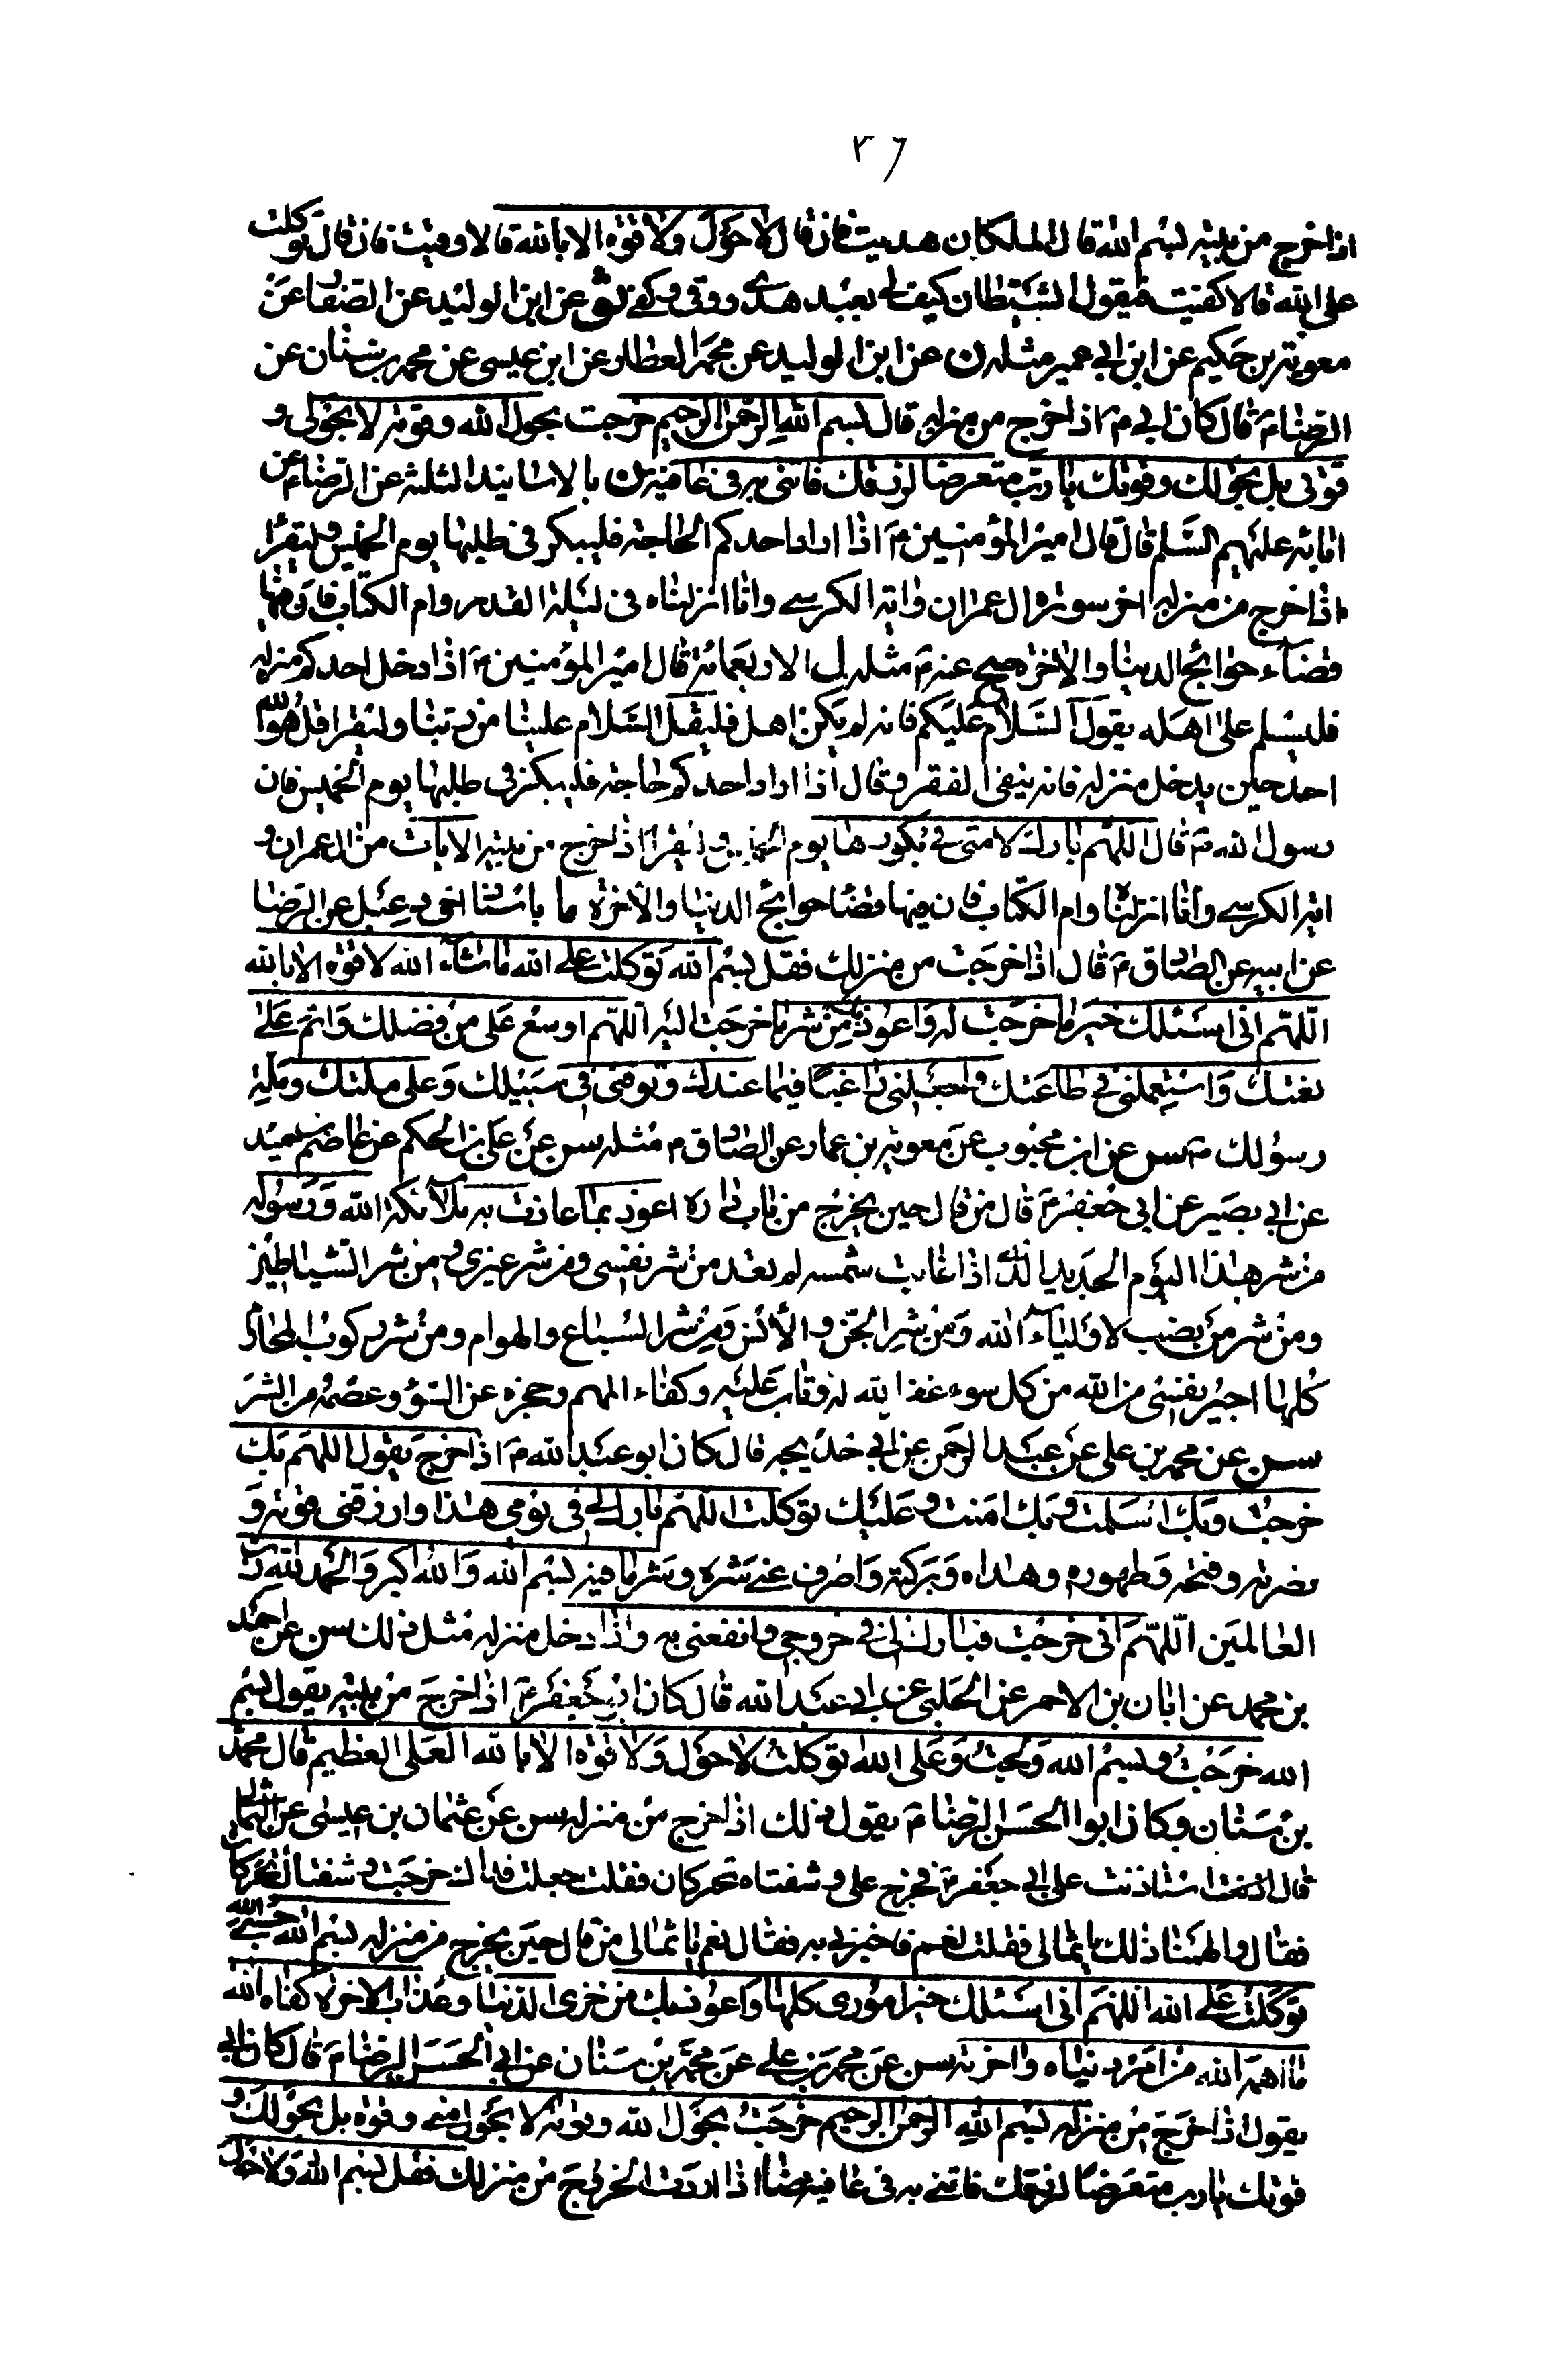 ٣٦
اذا خرج من بيته بسم الله قال الملكان هديت فان قال لا حول ولا قوة الا بالله قالا وقيت فان قال توكلت
على الله قالا كفيت فيقول الشيطان كيف لي بعبد هدى ووقى وكفى عن ابن الوليد عن الصفار عن
معوية بن حكيم عن ابن ابي عمير مثله ن عن ابن الوليد عن محمد العطار عن ابن عيسى عن محمد بن سنان عن
الرضا ع قال كان ابي ع اذا خرج من منزله قال بسم الله الرحمن الرحيم خرجت بحول الله وقوته لا بحولي و
قوتي بل بحولك وقوتك يا رب متعرضا لرزقك فاتني به في عافية ن بالاسانيد الثلثة عن الرضا ع عن
ابائه عليهم السلم قال قال امير المؤمنين ع اذا اراد احدكم الحاجة فليبكر في طلبها يوم الخميس وليقرأ
اذا خرج من منزله اخر سورة ال عمران واية الكرسي وانا انزلناه في ليلة القدر وام الكتاب فان فيها
قضاء حوائج الدنيا والاخرة صح عنه ع مثله ل الاربعمائة قال امير المؤمنين ع اذا دخل احدكم منزله
فليسلم على اهله يقول السلام عليكم فان لم يكن اهل فليقل السلام علينا من ربنا وليقرا قل هو الله
احد حين يدخل منزله فانه ينفي الفقر وقال اذا اراد احدكم حاجة فليبكر في طلبها يوم الخميس فان
رسول الله ص قال اللهم بارك لامتي في بكورها يوم الخميس وليقرا اذا خرج من بيته الايات من ال عمران و
اية الكرسي وانا انزلناه وام الكتاب فان فيها قضاء حوائج الدنيا والاخرة ما باسناد اخي دعبل عن الرضا
عن ابيه عن الصادق ع قال اذا خرجت من منزلك فقل بسم الله توكلت على الله ما شاء الله لا قوة الا بالله
اللهم اني اسئلك خير ما خرجت له واعوذ بك من شر ما خرجت اليه اللهم اوسع على من فضلك واتم على
نعمتك واستعملني في طاعتك واجعلني راغبا فيما عندك وتوفني في سبيلك وعلى ملتك وملة
رسولك ص سن عن ابن محبوب عن معوية بن عمار عن الصادق ع مثله سن عن علي بن الحكم عن عاصم بن حميد
عن ابي بصير عن ابي جعفر ع قال من قال حين يخرج من باب داره اعوذ بما عاذت به ملائكة الله ورسوله
من شر هذا اليوم الجديد الذي اذا غابت شمسه لم يعد من شر نفسي ومن شر غيري ومن شر الشياطين
ومن شر من نصب لاولياء الله ومن شر الجن والانس ومن شر السباع والهوام ومن شر ركوب المحارم
كلها اجير نفسي من الله من كل سوء غفر الله له وتاب عليه وكفاه المهم وحجزه عن السوء وعصمه من الشر
سن عن محمد بن علي عن عبد الرحمن عن ابي خديجه قال كان ابو عبد الله ع اذا خرج يقول اللهم بك
خرجت وبك اسلمت وبك امنت وعليك توكلت اللهم بارك لي في يومي هذا وارزقني فوزه و
نصرته وفتحه وطهوره وهداه وبركته واصرف عني شره وشر ما فيه بسم الله والله اكبر والحمد لله رب
العالمين اللهم اني خرجت فبارك لي في خروجي وانفعني به واذا دخل منزله مثل ذلك سن عن احمد
بن محمد عن ابان بن الاحمر عن الحلبي عن ابي عبد الله قال كان ابي جعفر ع اذا خرج من بيته يقول بسم
الله خرجت وبسم الله ولجت وعلى الله توكلت لا حول ولا قوة الا بالله العلي العظيم قال محمد
بن سنان وكان ابوا الحسن الرضا ع يقول ذلك اذا خرج من منزله سن عن عثمان بن عيسى عن الثمالي
قال استاذنت على ابي جعفر ع فخرج علي وشفتاه تتحركان فقلت جعلت فداك خرجت وشفتاك تتحركان
فقال والهمنا ذلك يا ثمالي فقلت نعم فاخبرني به فقال نعم يا ثمالي من قال حين يخرج من منزله بسم الله حسبي الله
توكلت على الله اللهم اني اسئلك خير اموري كلها واعوذ بك من خزى الدنيا وعذاب الاخرة كفاه الله
ما اهمه الله من امر دنياه واخرته سن عن محمد بن علي عن محمد بن سنان عن ابي الحسن الرضا ع قال كان ابي
يقول اذا خرج من منزله بسم الله الرحمن الرحيم خرجت بحول الله وقوته لا بحول مني وقوة بل بحولك و
قوتك يا رب متعرضا لرزقك فاتني به في عافية ضا اذا اردت الخروج من منزلك فقل بسم الله ولا حول